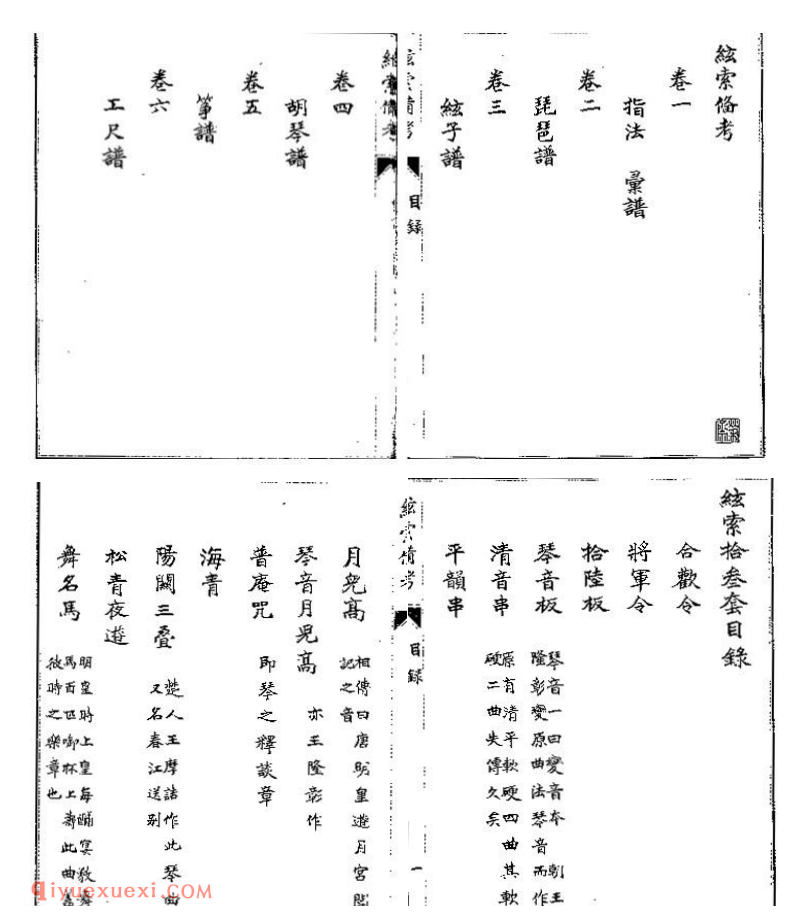 絃索備考
卷一
指法 彙譜
卷二
琵琶譜
卷三
絃子譜
絃索備考
目錄
卷四
胡琴譜
卷五
箏譜
卷六
工尺譜
絃索拾叁套目錄
合歡令
將軍令
拾陸板
琴音板
琴音一曰變音本朝王
隆彰變原曲法琴音而作
清音串
原有清平軟硬四曲其軟
硬二曲失傳久矣
平韻串
絃索備考
目錄
一
月兒高
相傳曰唐明皇遊月宮
記之音
琴音月兒高
亦王隆彰作
普庵咒
即琴之釋談章
海青
陽關三疊
楚人王摩詰作此琴曲
又名春江送别
松青夜遊
舞名馬
明皇時上皇每酺宴教舞
馬百匹啣杯上壽此曲
彼時之樂章也
qiyuexuexi.COM